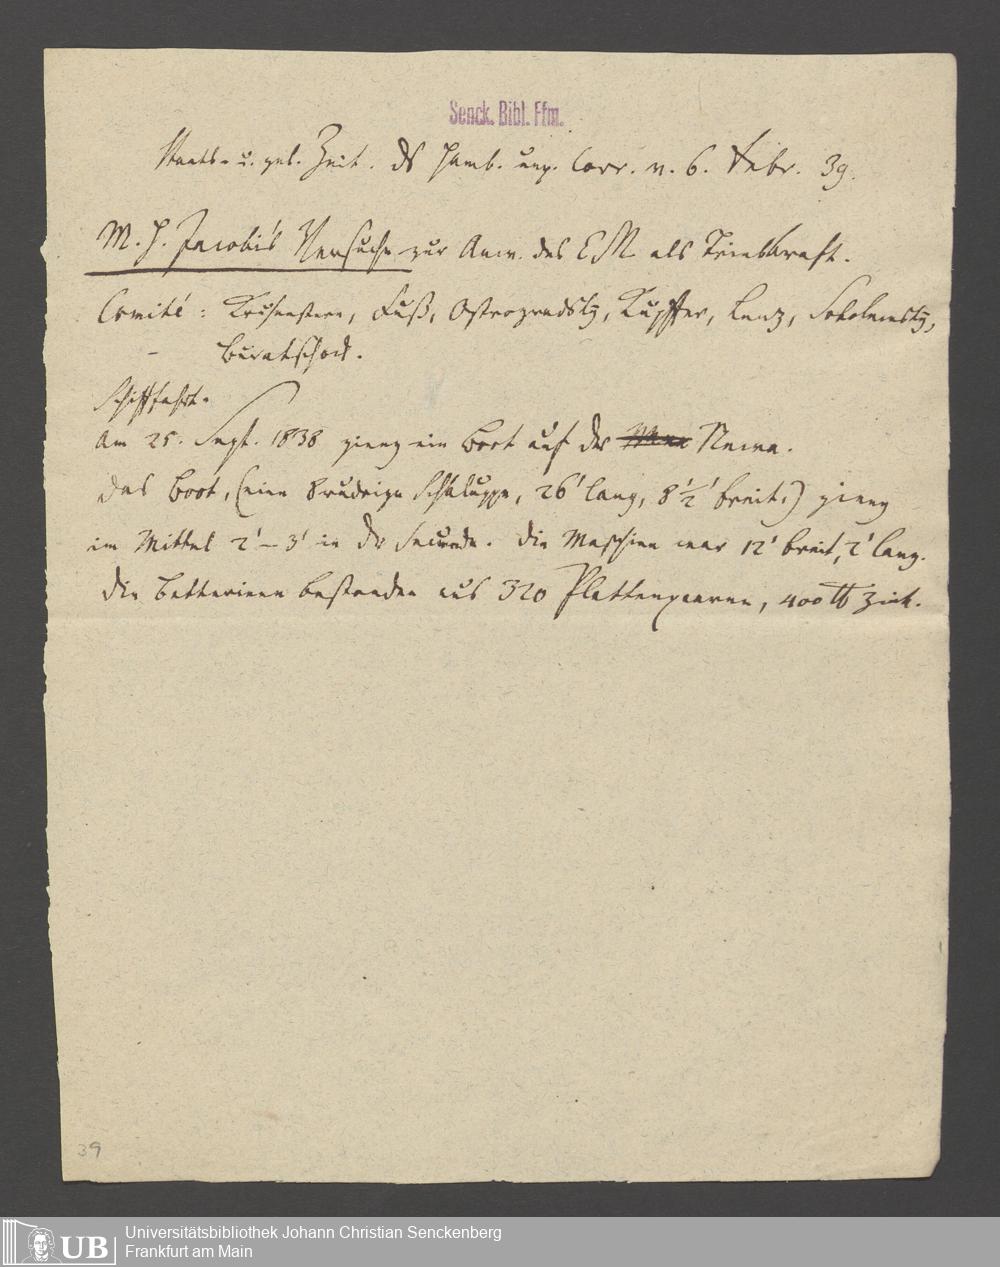 Senck. Bibl. Ffm.
Staats- u. gel. Zeit. ds Hamb. unp. Corr. v. 6. Febr. 39.
M. H. Jacobi's Versuche zur Anw. des EM als Triebkraft.
Comité: Krusenstern, Fuß, Ostrogradsky, Kupffer, Lenz, Sokolewsky,
Buratschock.
Schifffahrt.
Am 25. Sept. 1838 gieng ein Boot auf der Newa.
Das Boot, (eine 8rudrige Schaluppe, 26' lang, 8 1/2' breit,) gieng
im Mittel 2'–3' in dr Secunde. Die Maschine war 12' breit, 2' lang.
Die Batterieen bestanden aus 320 Plattenpaaren, 400 ℔ Zink.
39
Universitätsbibliothek Johann Christian Senckenberg
UB Frankfurt am Main